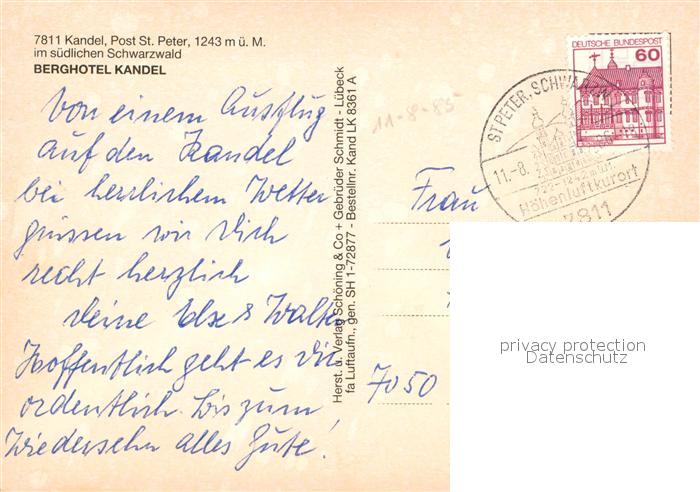 7811 Kandel, Post St. Peter, 1243 m ü. M.
im südlichen Schwarzwald
BERGHOTEL KANDEL
Von einem Ausflug
auf den Kandel
bei herrlichem Wetter
grüssen wir Dich
recht herzlich
deine Else & Walter
Hoffentlich geht es Dir
ordentlich. Bis zum
Wiedersehn alles Gute!
Herst. u. Verlag Schöning & Co + Gebrüder Schmidt - Lübeck
fa Luftaufn., gen. SH 1-72877 - Bestellnr. Kand LK 8361 A
11-8-85
DEUTSCHE BUNDESPOST
60
ST PETER, SCHWARZW
11.-8.
722-1243 m ü.M.
Höhenluftkurort
7811
Frau
7050
privacy protection
Datenschutz